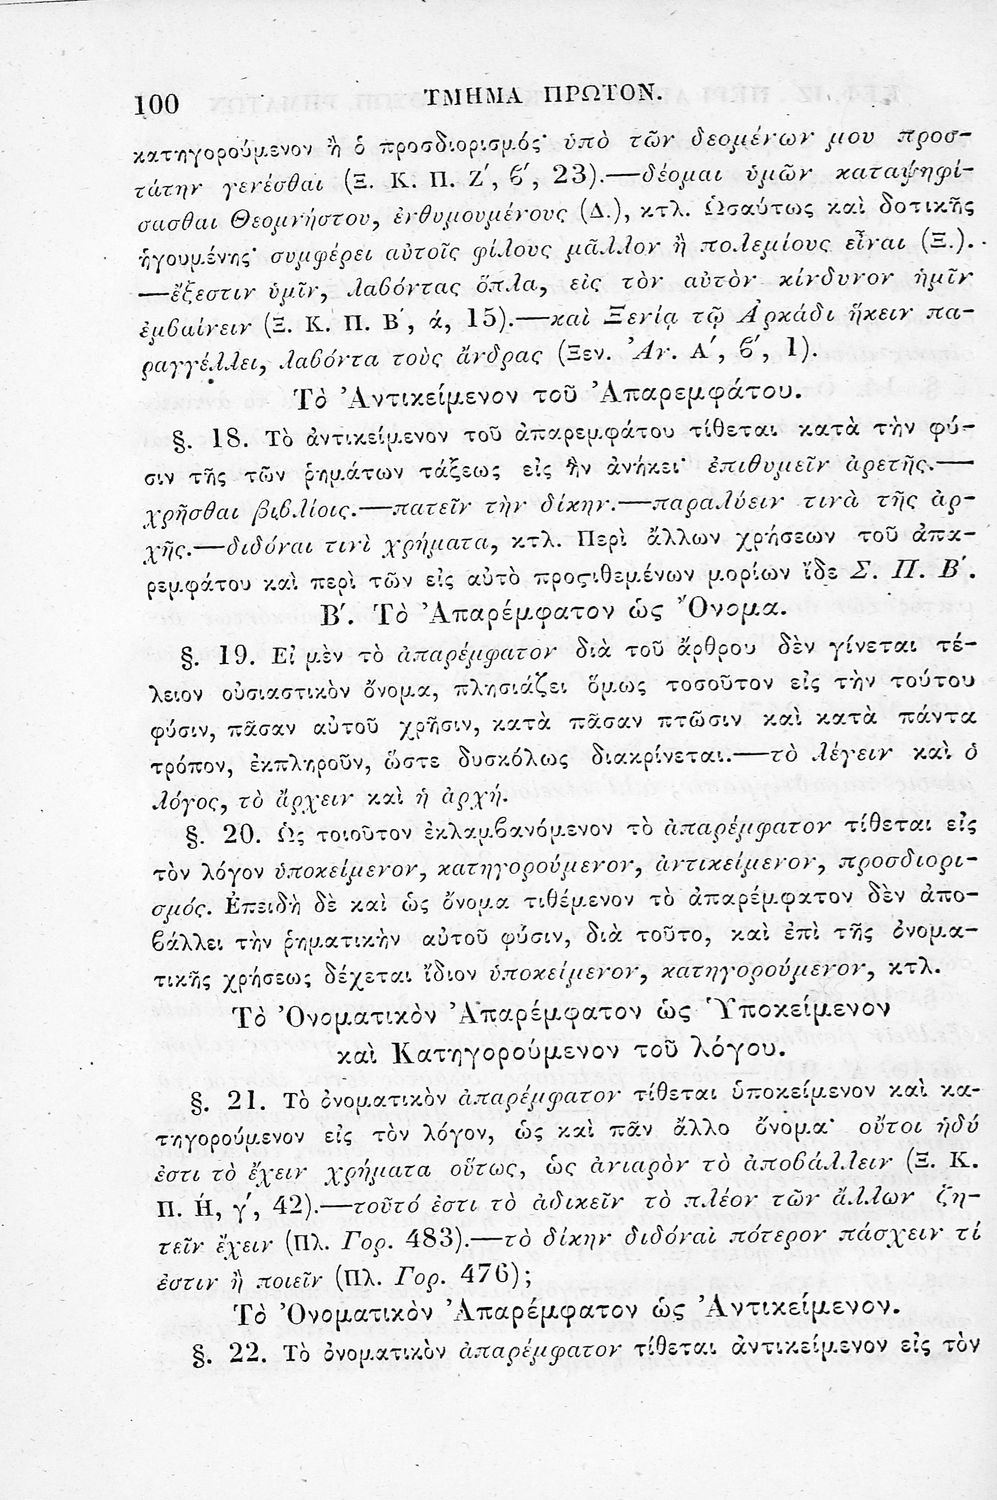 100 ΤΜΗΜΑ ΠΡΩΤΟΝ.
κατηγορούμενον ἢ ὁ προσδιορισμός· ὑπὸ τῶν δεομένων μου προσ-
τάτην γενέσθαι (Ξ. Κ. Π. Ζ΄, ϐ΄, 23).—δέομαι ὑμῶν καταψηφί-
σασθαι Θεομνήστου, ἐνθυμουμένους (Δ.), κτλ. Ὡσαύτως καὶ δοτικῆς
ἡγουμένης· συμφέρει αὐτοῖς φίλους μᾶλλον ἢ πολεμίους εἶναι (Ξ.).
—ἔξεστιν ὑμῖν, λαβόντας ὅπλα, εἰς τὸν αὐτὸν κίνδυνον ἡμῖν
ἐμϐαίνειν (Ξ. Κ. Π. Β΄, ά, 15).—καὶ Ξενίᾳ τῷ Ἀρκάδι ἥκειν πα-
ραγγέλλει, λαβόντα τοὺς ἄνδρας (Ξεν. Ἀν. Α΄, ϐ΄, 1).
Τὸ Ἀντικείμενον τοῦ Ἀπαρεμφάτου.
§. 18. Τὸ ἀντικείμενον τοῦ ἀπαρεμφάτου τίθεται κατὰ τὴν φύ-
σιν τῆς τῶν ῥημάτων τάξεως εἰς ἣν ἀνήκει· ἐπιθυμεῖν ἀρετῆς.—
χρῆσθαι βιϐλίοις.—πατεῖν τὴν δίκην.—παραλύειν τινὰ τῆς ἀρ-
χῆς.—διδόναι τινὶ χρήματα, κτλ. Περὶ ἄλλων χρήσεων τοῦ ἀπα-
ρεμφάτου καὶ περὶ τῶν εἰς αὐτὸ προςτιθεμένων μορίων ἴδε Σ. Π. Β΄.
Β΄. Τὸ Ἀπαρέμφατον ὡς Ὄνομα.
§. 19. Εἰ μὲν τὸ ἀπαρέμφατον διὰ τοῦ ἄρθρου δὲν γίνεται τέ-
λειον οὐσιαστικὸν ὄνομα, πλησιάζει ὅμως τοσοῦτον εἰς τὴν τούτου
φύσιν, πᾶσαν αὐτοῦ χρῆσιν, κατὰ πᾶσαν πτῶσιν καὶ κατὰ πάντα
τρόπον, ἐκπληροῦν, ὥστε δυσκόλως διακρίνεται.—τὸ λέγειν καὶ ὁ
λόγος, τὸ ἄρχειν καὶ ἡ ἀρχή.
§. 20. Ὡς τοιοῦτον ἐκλαμϐανόμενον τὸ ἀπαρέμφατον τίθεται εἰς
τὸν λόγον ὑποκείμενον, κατηγορούμενον, ἀντικείμενον, προσδιορι-
σμός. Ἐπειδὴ δὲ καὶ ὡς ὄνομα τιθέμενον τὸ ἀπαρέμφατον δὲν ἀπο-
ϐάλλει τὴν ῥηματικὴν αὐτοῦ φύσιν, διὰ τοῦτο, καὶ ἐπὶ τῆς ὀνομα-
τικῆς χρήσεως δέχεται ἴδιον ὑποκείμενον, κατηγορούμενον, κτλ.
Τὸ Ὀνοματικὸν Ἀπαρέμφατον ὡς Ὑποκείμενον
καὶ Κατηγορούμενον τοῦ λόγου.
§. 21. Τὸ ὀνοματικὸν ἀπαρέμφατον τίθεται ὑποκείμενον καὶ κα-
τηγορούμενον εἰς τὸν λόγον, ὡς καὶ πᾶν ἄλλο ὄνομα· οὔτοι ἡδύ
ἐστι τὸ ἔχειν χρήματα οὕτως, ὡς ἀνιαρὸν τὸ ἀποϐάλλειν (Ξ. Κ.
Π. Ή, γ΄, 42).—τοῦτό ἐστι τὸ ἀδικεῖν τὸ πλέον τῶν ἄλλων ζη-
τεῖν ἔχειν (Πλ. Γορ. 483).—τὸ δίκην διδόναι πότερον πάσχειν τί
ἐστιν ἢ ποιεῖν (Πλ. Γορ. 476);
Τὸ Ὀνοματικὸν Ἀπαρέμφατον ὡς Ἀντικείμενον.
§. 22. Τὸ ὀνοματικὸν ἀπαρέμφατον τίθεται ἀντικείμενον εἰς τὸν